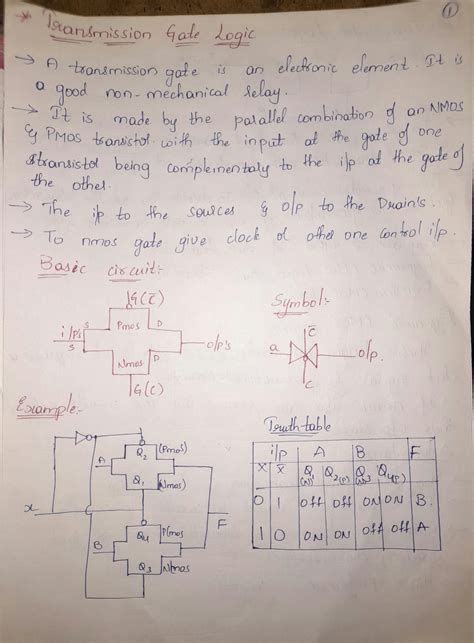 ①
* Transmission Gate Logic
→ A transmission gate is an electronic element. It is
a good non-mechanical relay.
→ It is made by the parallel combination of an NMOS
& PMOS transistor with the input at the gate of one
transistor being complementary to the i/p at the gate of
the other.
→ The i/p to the sources & o/p to the Drain's.
→ To nmos gate give clock or other one control i/p.
Basic circuit:-
G(C̅)
Pmos
S
D
i/p's
o/p's
S
D
Nmos
G(C)
Symbol:-
C̅
a
o/p.
C
Example:-
A
Q2
(Pmos)
Q1
(Nmos)
x
F
B
Q4
(Pmos
Q3
Nmos
Truth table
i/p A B F
X X̅ Q1(N) Q2(P) Q3(N) Q4(P)
0 1 off off ON ON B.
1 0 ON ON off off A